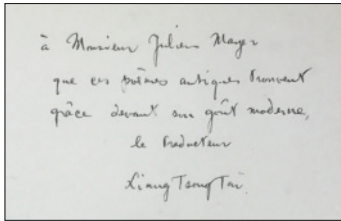 à Monsieur Julien Mayer
que ces poèmes antiques trouvent
grâce devant son goût moderne,
le traducteur
Liang Tsong Tai